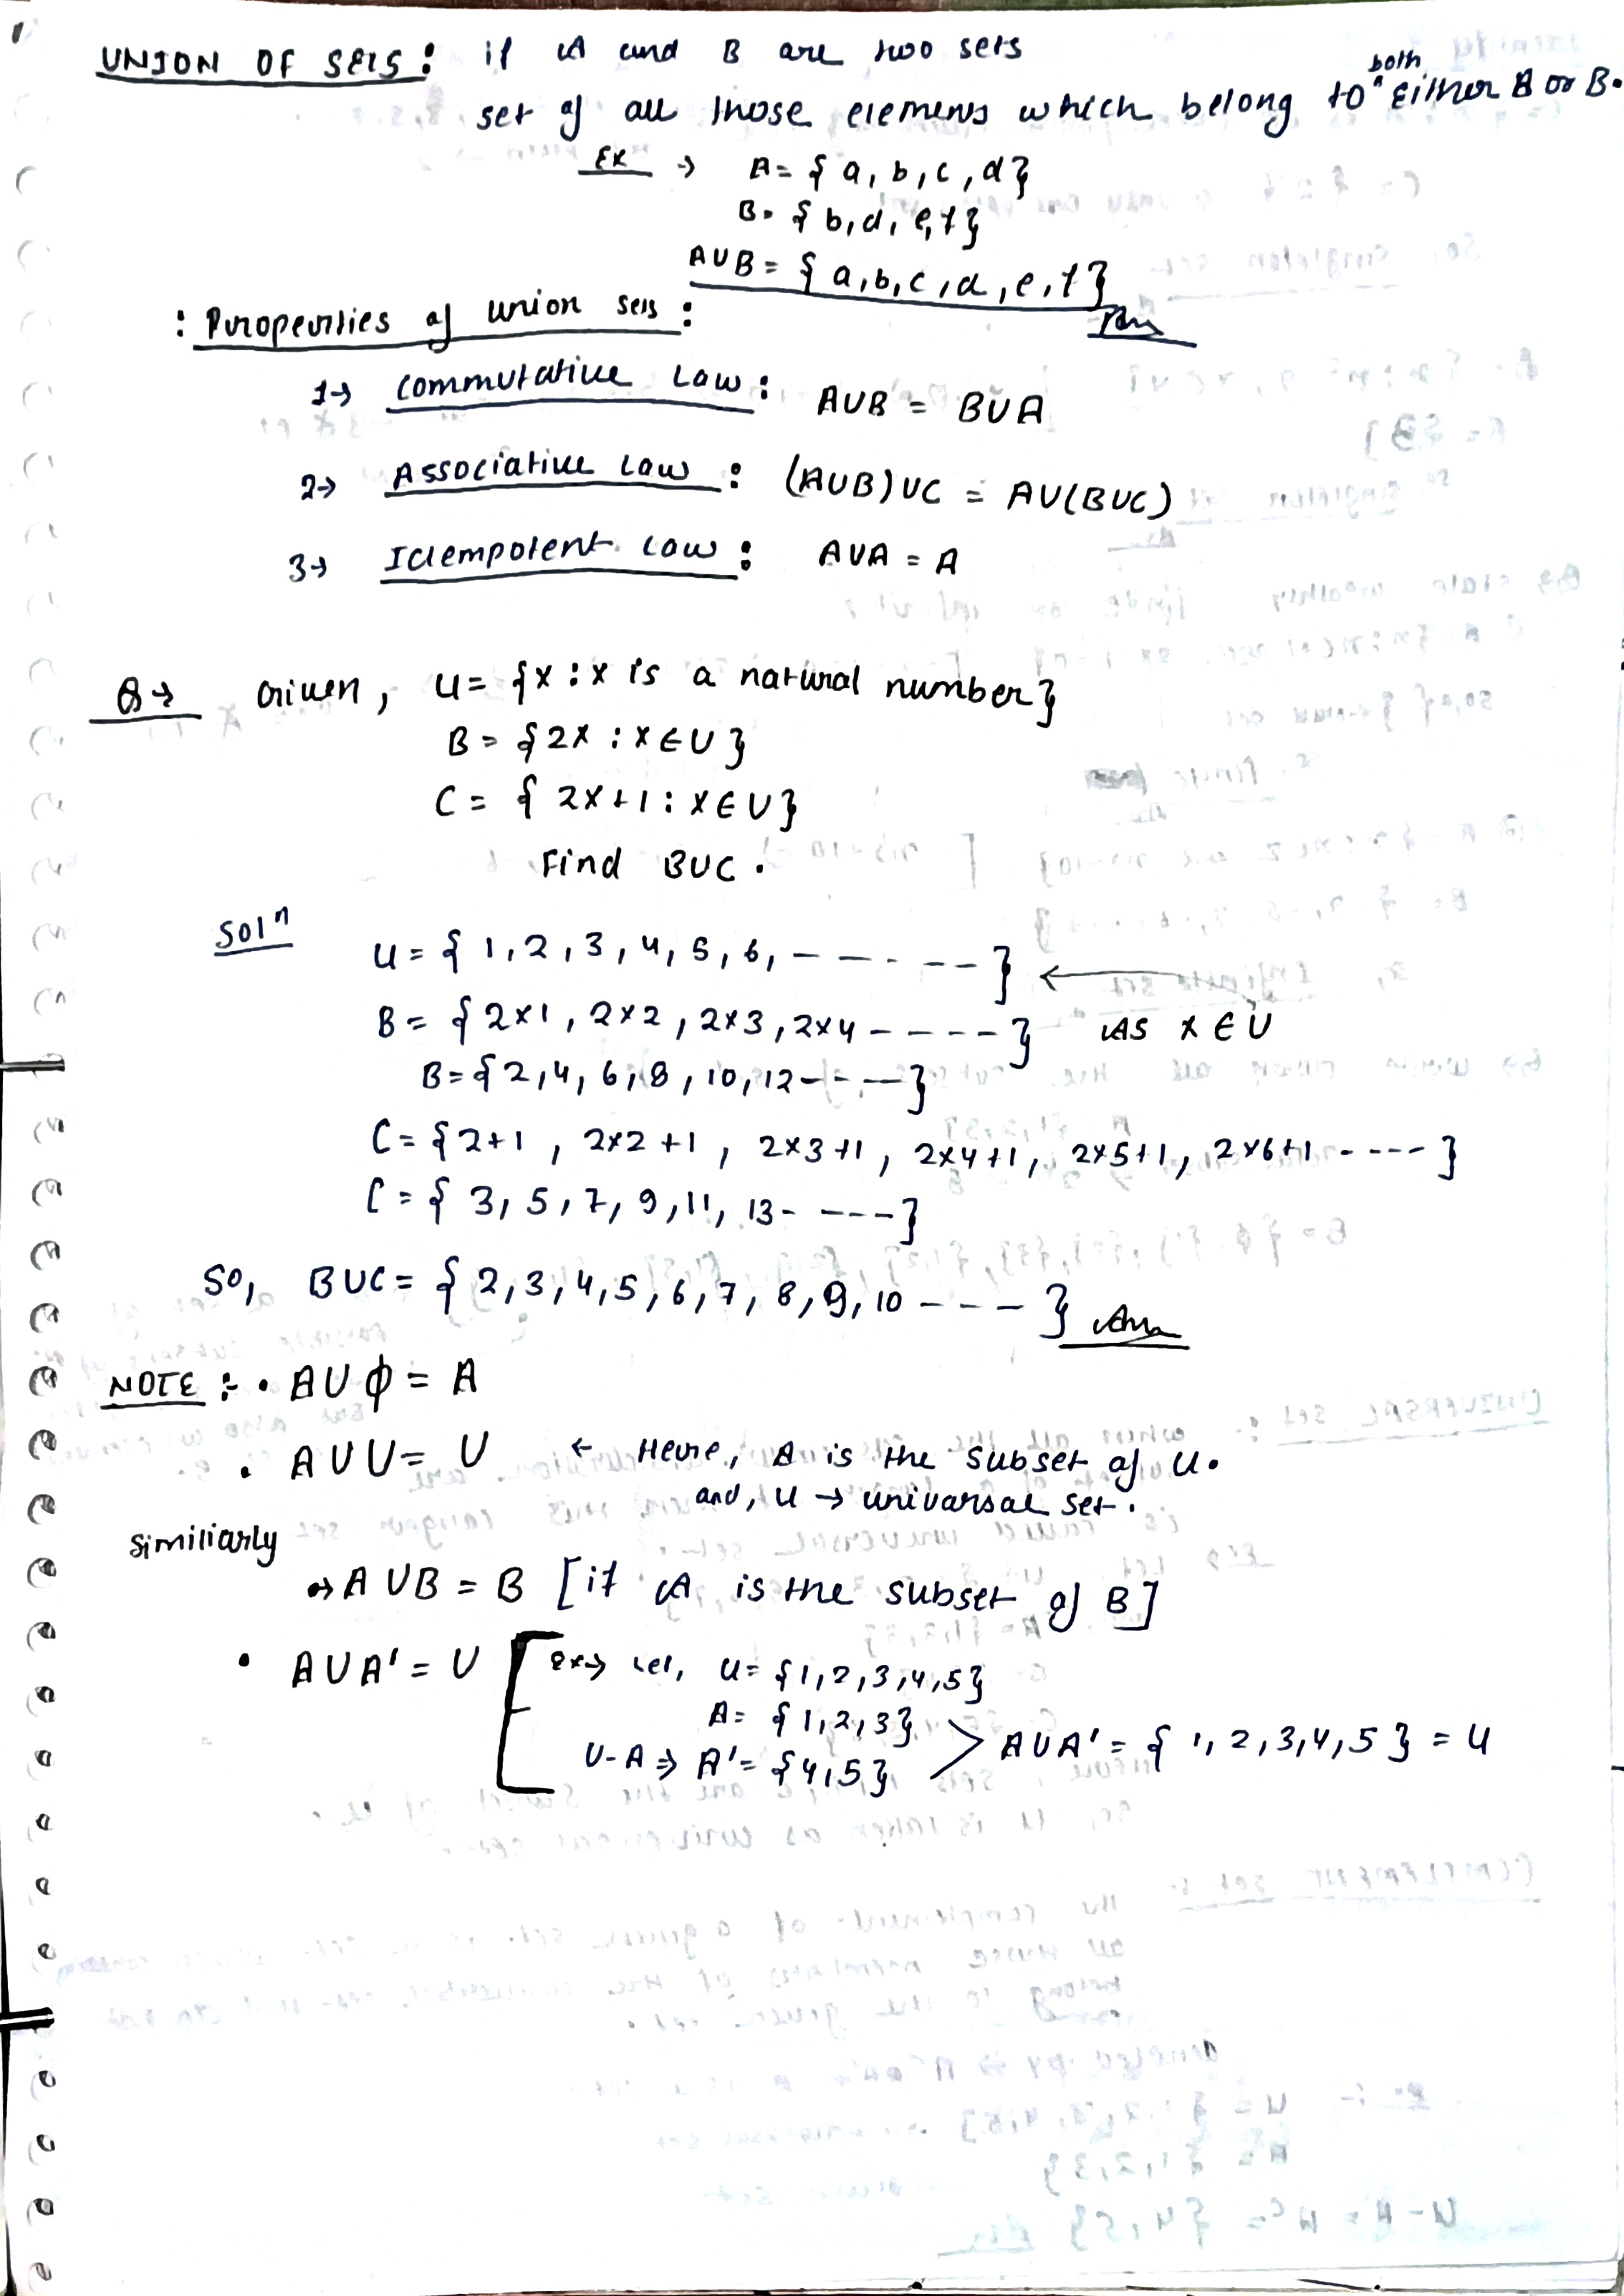 UNION OF SETS : if A and B are two sets
set of all those elements which belong to both Either A or B.
EX → A = { a, b, c, d }
B = { b, d, e, f }
AUB = { a, b, c, d, e, f }
Ans
: Properties of union sets :
1→ Commutative Law : AUB = BUA
2→ Associative Law : (AUB)UC = AU(BUC)
3→ Idempotent Law : AUA = A
Q→ Given, U = {x : x is a natural number}
B = {2x : x ∈ U }
C = { 2x+1 : x ∈ U}
Find BUC .
Solⁿ
U = { 1, 2, 3, 4, 5, 6, - - - - - - }
B = { 2×1, 2×2, 2×3, 2×4 - - - - - } As x ∈ U
B = { 2, 4, 6, 8, 10, 12 - - - }
C = { 2+1 , 2×2 +1 , 2×3 +1 , 2×4 +1, 2×5+1, 2×6+1 - - - - }
C = { 3, 5, 7, 9, 11, 13 - - - - }
So, BUC = { 2, 3, 4, 5, 6, 7, 8, 9, 10 - - - } Ans
NOTE :- • AU ϕ = A
• AUU = U ← Here, A is the subset of U.
and, U → univarsal set.
Similiarly
⇒ AUB = B [if A is the subset of B]
• AUA' = U [ Ex→ Let, U = {1,2,3,4,5}
A = {1,2,3}
U-A ⇒ A' = {4,5} > AUA' = { 1, 2, 3, 4, 5 } = U